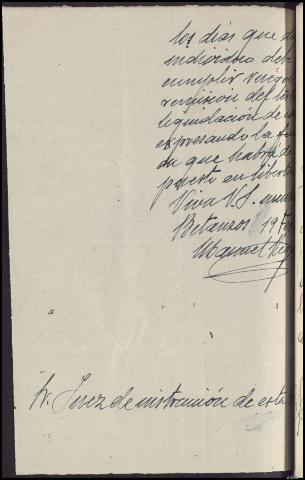 los días que d
individuo deb
cumplir
remisión del
liquidación de
expresando la
da que habrá d
puesto en libert
Viva V.S. mu
Betanzos 19 Fe
Manuel
Sr. Juez de instrucción de est